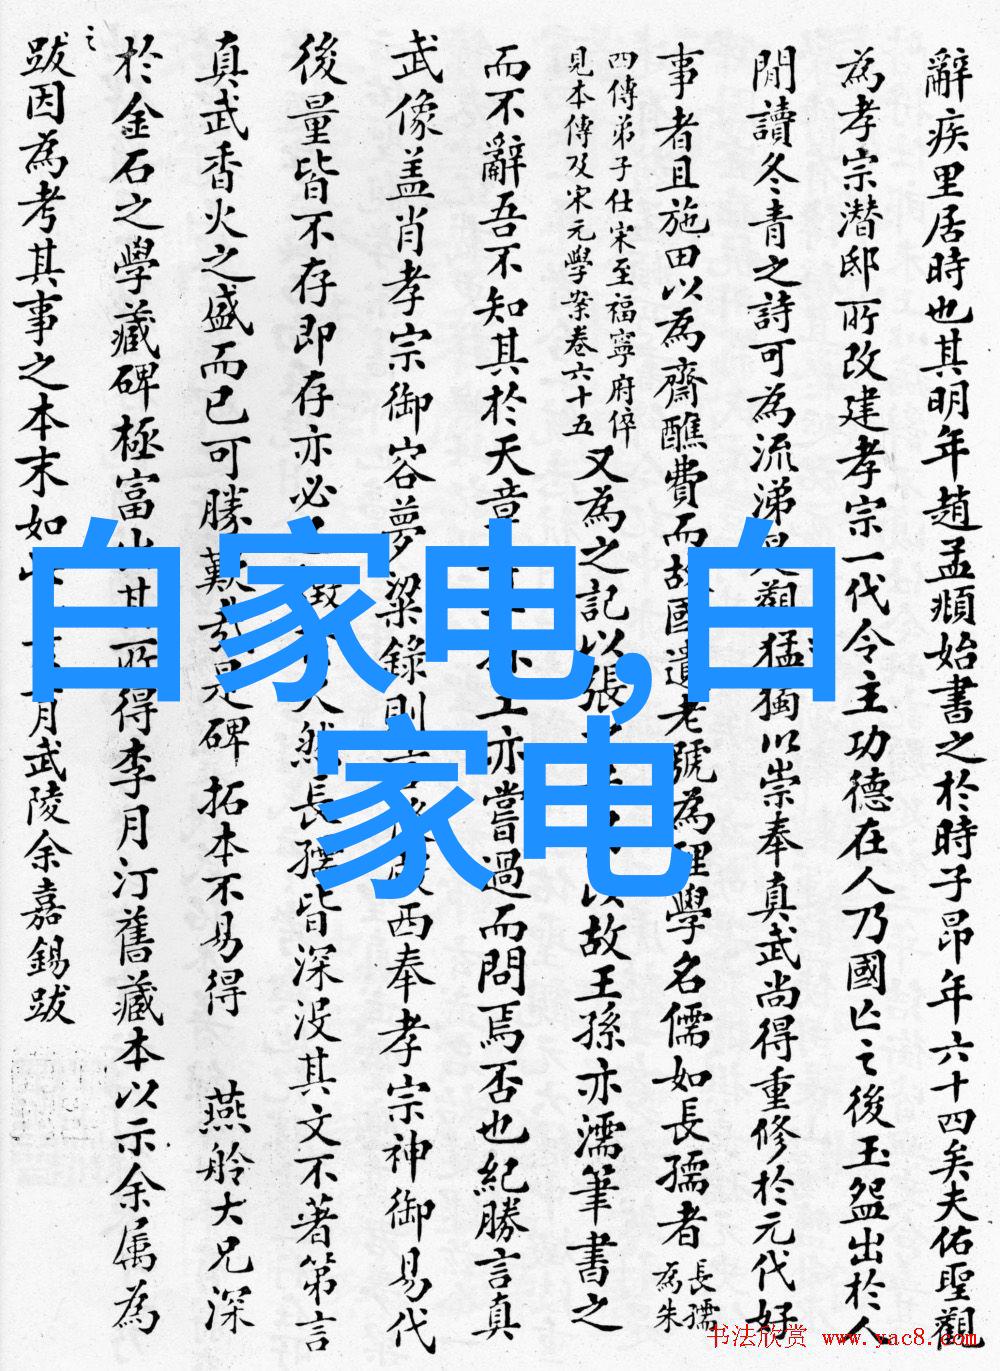 辭疾里居時也其明年趙孟頫始書之於時子昂年六十四矣夫佑聖觀
為孝宗潛邸所改建孝宗一代令主功德在人乃國亡之後玉盌出於人
閒讀冬青之詩可為流涕是觀猛獨以崇奉真武尚得重修於元代好
事者且施田以為齋醮費而故國遺老號為理學名儒如長孺者
長孺
為朱
四傳弟子仕宋至福寧府倅
見本傳及宋元學案卷六十五
又為之記以張故王孫亦濡筆書之
而不辭吾不知其於天章亦嘗過而問焉否也紀勝言真
武像蓋肖孝宗御容夢粱錄則西奉孝宗神御易代
後量皆不存即存亦必然長孺皆深沒其文不著第言
真武香火之盛而已可勝歎哉是碑拓本不易得 燕舲大兄深
於金石之學藏碑極富出其所得李月汀舊藏本以示余属為
之
跋因為考其事之本末如月武陵余嘉錫跋
白家电,白
家电
书法欣赏 www.yac8.com